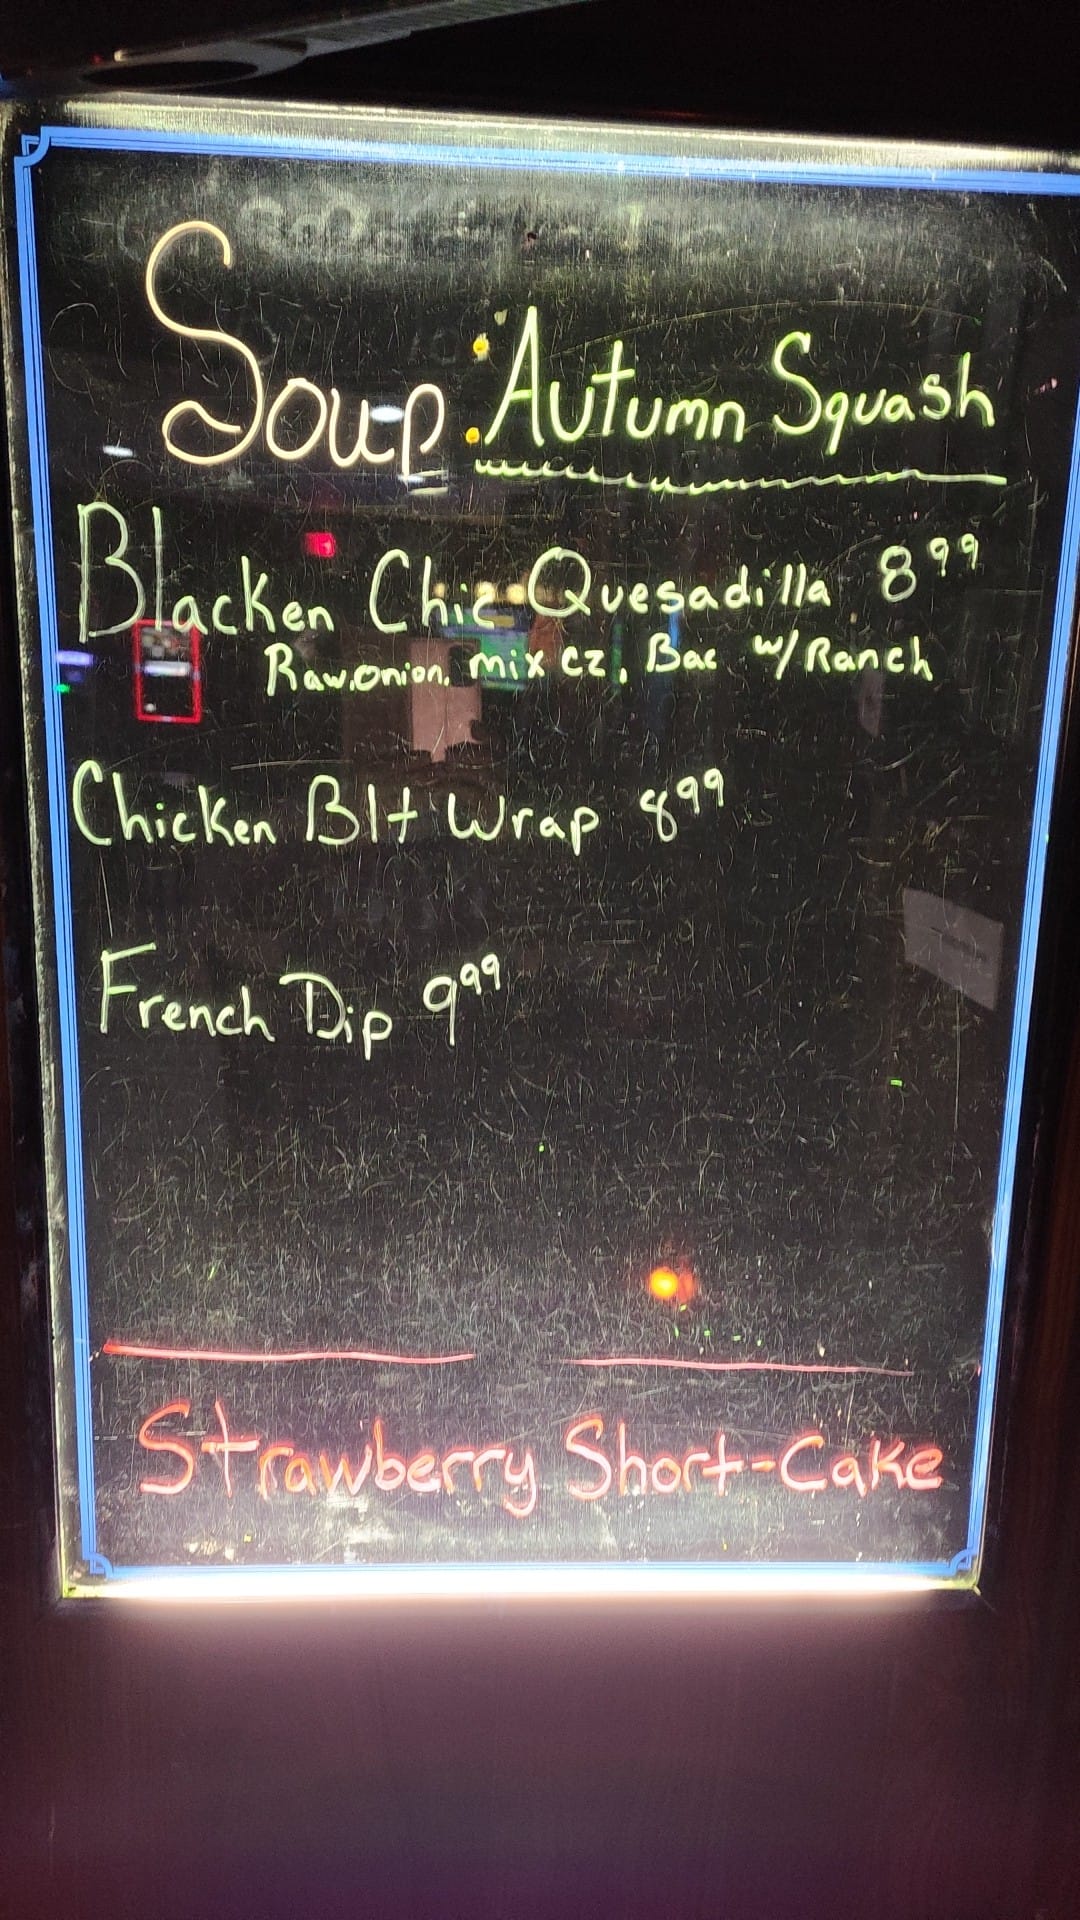 Soup: Autumn Squash
Blacken Chic Quesadilla 8 99
Raw.onion, mix cz, Bac w/ Ranch
Chicken Blt Wrap 8 99
French Dip 9 99
Strawberry Short-Cake